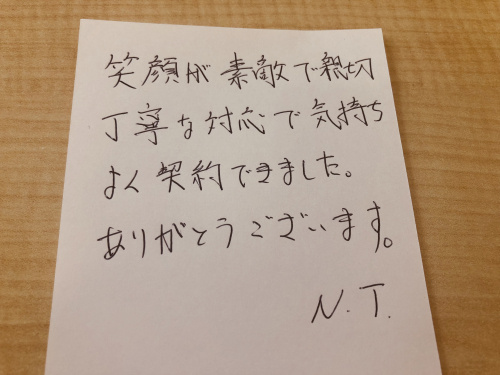 笑顔が素敵で親切
丁寧な対応で気持ち
よく契約できました。
ありがとうございます。
N.T.